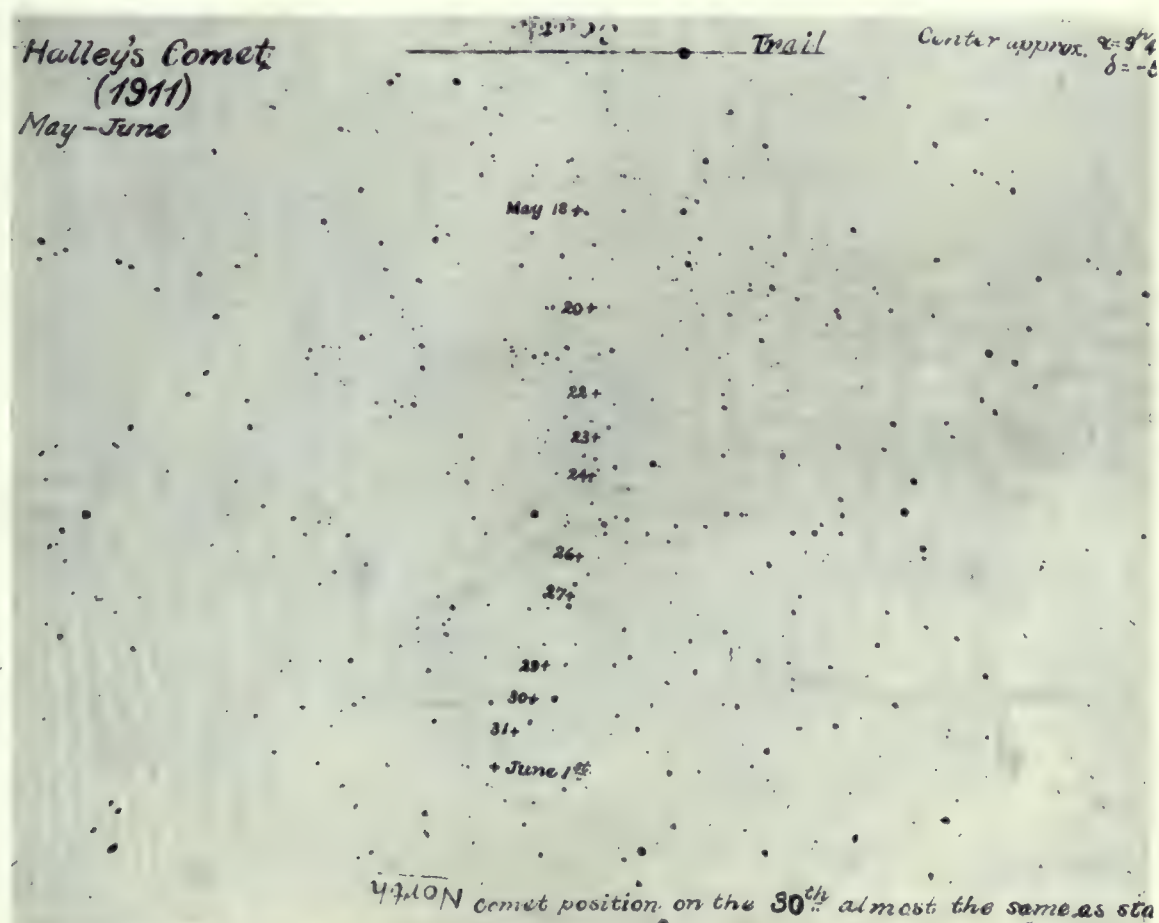 Halley's Comet
(1911)
May - June
Trail
Center approx.
May 18+
20+
22+
23+
24+
26+
27+
29+
30+
31+
+ June 1st
North comet position on the 30th almost the same as